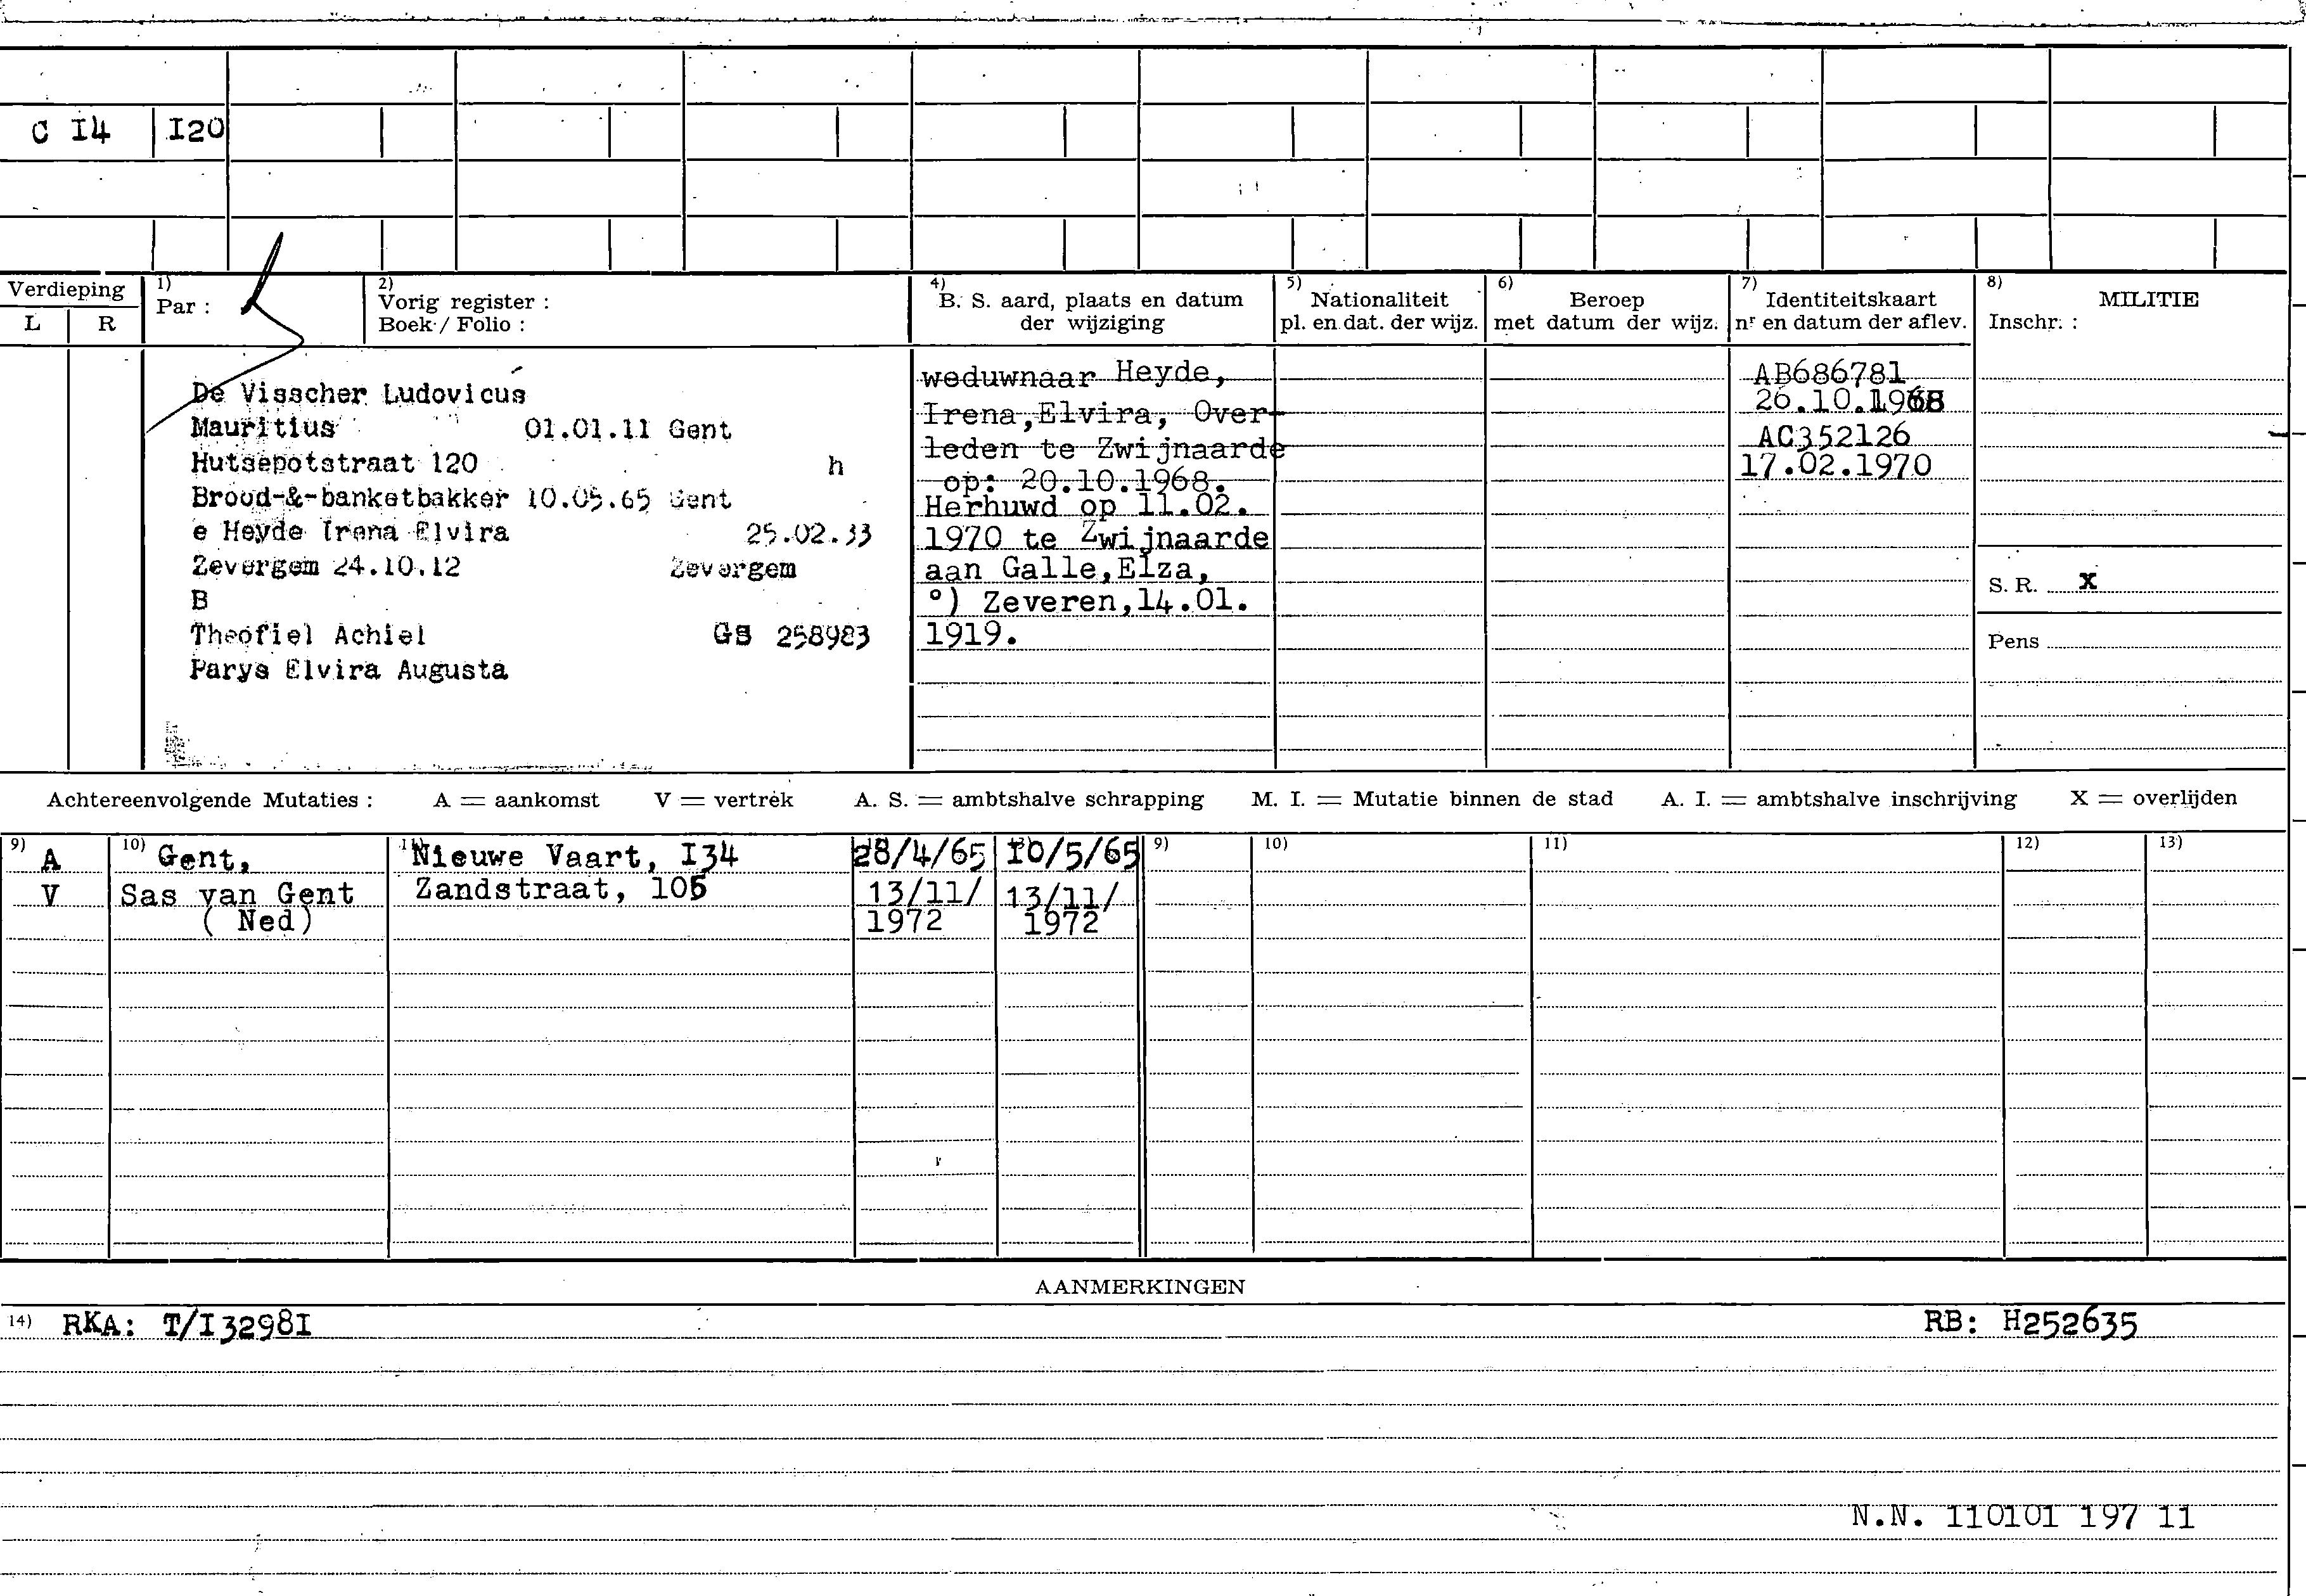 C I4 I20
Verdieping
L R
1) Par :
2) Vorig register :
Boek / Folio :
4) B. S. aard, plaats en datum
der wijziging
5) Nationaliteit
pl. en dat. der wijz.
6) Beroep
met datum der wijz.
7) Identiteitskaart
nr en datum der aflev.
8) MILITIE
Inschr. :
De Visscher Ludovicus
Mauritius 01.01.11 Gent
Hutsepotstraat 120 h
Brood-&-banketbakker 10.05.65 Gent
e Heyde Irena Elvira 25.02.33
Zevergem 24.10.12 Zevergem
B
Theofiel Achiel GS 258983
Parys Elvira Augusta
weduwnaar Heyde,
Irena,Elvira, Over-
leden te Zwijnaarde
op: 20.10.1968.
Herhuwd op 11.02.
1970 te Zwijnaarde
aan Galle,Elza,
°) Zeveren,14.01.
1919.
AB686781
26.10.1968
AC352126
17.02.1970
S. R. X
Pens
Achtereenvolgende Mutaties : A = aankomst V = vertrek A. S. = ambtshalve schrapping M. I. = Mutatie binnen de stad A. I. = ambtshalve inschrijving X = overlijden
9) A 10) Gent, Nieuwe Vaart, I34 28/4/65 10/5/65 9) 10) 11) 12) 13)
V Sas van Gent Zandstraat, 105 13/11/ 13/11/
( Ned) 1972 1972
AANMERKINGEN
14) RKA: T/I3298I RB: H252635
N.N. 110101 197 11